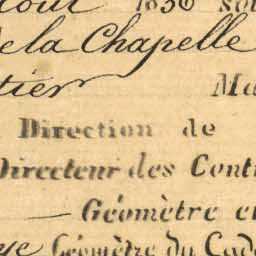 1830 sou
de la Chapelle
tier Ma
Direction de
Directeur des Cont
— Géomètre e
Géomètre du Cad